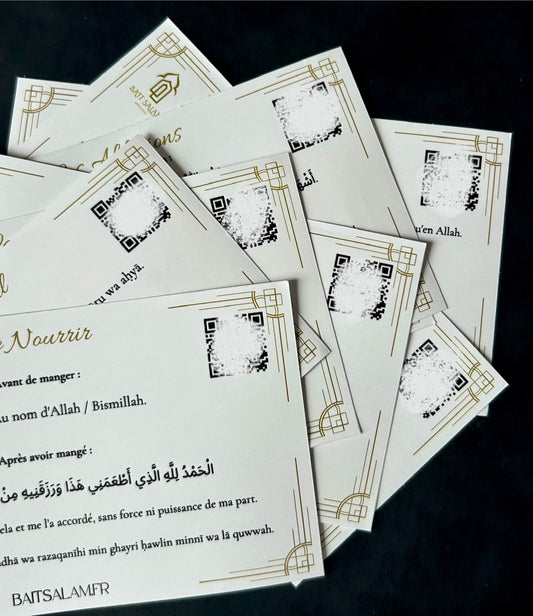 BAITSALAM
Ablutions
أَشْهَ
u'en Allah.
ru wa ahyā.
Nourrir
Avant de manger :
Au nom d'Allah / Bismillah.
Après avoir mangé :
الْحَمْدُ لِلَّهِ الَّذِي أَطْعَمَنِي هَذَا وَرَزَقَنِيهِ مِنْ
ela et me l'a accordé, sans force ni puissance de ma part.
adhā wa razaqanīhi min ghayri ḥawlin minnī wa lā quwwah.
BAITSALAM.FR